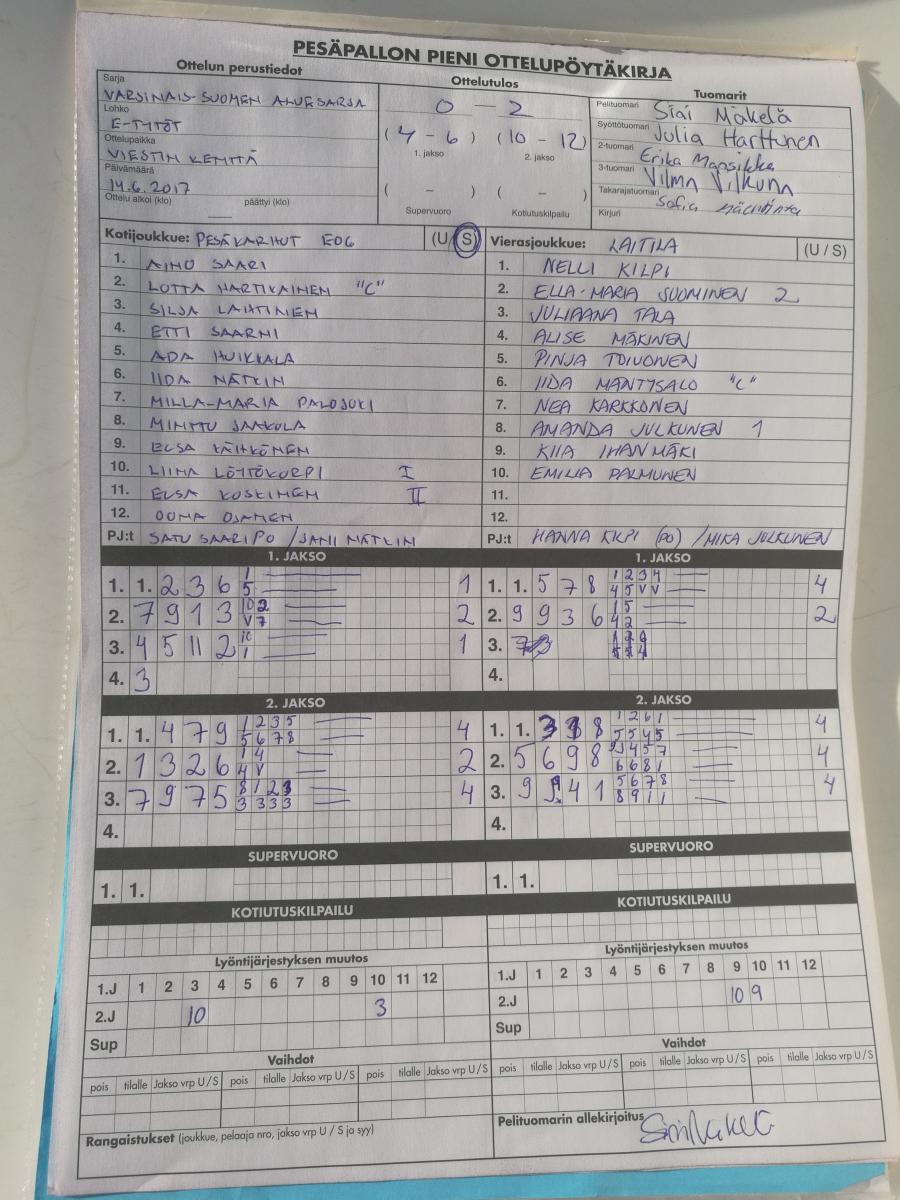 PESÄPALLON PIENI OTTELUPÖYTÄKIRJA
Ottelun perustiedot
Ottelutulos
Tuomarit
Sarja
VARSINAIS-SUOMEN ALUESARJA
Lohko
E-TYTÖT
Ottelupaikka
VIESTIN KENTTÄ
Päivämäärä
14.6.2017
Ottelu alkoi (klo) päättyi (klo)
0 - 2
(4 - 6) (10 - 12)
1. jakso 2. jakso
( - ) ( - )
Supervuoro Kotiutuskilpailu
Pelituomari Siiri Mäkelä
Syöttötuomari Julia Harttunen
2-tuomari Erika Mansikka
3-tuomari Vilma Vilkuna
Takarajatuomari Sofia
Kirjuri
Kotijoukkue: PESÄKARHUT E06 (U/S)
1. AINO SAARI
2. LOTTA HARTIKAINEN "C"
3. SILJA LAHTINEN
4. ETTI SAARNI
5. ADA HUIKKALA
6. IIDA NÄTKIN
7. MILLA-MARIA PALOJOKI
8. MINTTU JAAKOLA
9. ELSA KÄHKÖNEN
10. LIINA LÖTTÖKORPI I
11. ELSA KOSKINEN II
12. OONA OJANEN
PJ:t SATU SAARIPO / JANI NÄTKIN
Vierasjoukkue: LAITILA (U / S)
1. NELLI KILPI
2. ELLA-MARIA SUOMINEN 2
3. JULIAANA TALA
4. ALISE MÄKINEN
5. PINJA TOIVONEN
6. IIDA MÄNTYSALO "C"
7. NEA KARKKONEN
8. AMANDA JULKUNEN 1
9. KIIA IHANMÄKI
10. EMILIA PALMUNEN
11.
12.
PJ:t HANNA KILPI (PO) / MIKA JULKUNEN
1. JAKSO
1. 1. 2 3 6 1 5 1
2. 7 9 1 3 10 2 V 7 2
3. 4 5 11 2 10 1 1
4. 3
1. JAKSO
1. 1. 5 7 8 1 2 3 4 4 5 V V 4
2. 9 9 3 6 1 5 4 2 2
3.
4.
2. JAKSO
1. 1. 4 7 9 1 2 3 5 5 6 7 8 4
2. 1 3 2 6 1 4 4 V 2
3. 7 9 7 5 8 1 2 3 3 3 3 3 4
4.
2. JAKSO
1. 1. 3 8 1 2 6 1 5 5 4 5 4
2. 5 6 9 8 3 4 5 7 6 6 8 1 4
3. 9 9 4 1 5 6 7 8 8 9 1 1 4
4.
SUPERVUORO
1. 1.
SUPERVUORO
1. 1.
KOTIUTUSKILPAILU
KOTIUTUSKILPAILU
Lyöntijärjestyksen muutos
1.J 1 2 3 4 5 6 7 8 9 10 11 12
2.J 10 3
Sup
Lyöntijärjestyksen muutos
1.J 1 2 3 4 5 6 7 8 9 10 11 12
2.J 10 9
Sup
Vaihdot
pois tilalle Jakso vrp U / S pois tilalle Jakso vrp U / S pois tilalle Jakso vrp U / S
Vaihdot
pois tilalle Jakso vrp U / S pois tilalle Jakso vrp U / S pois tilalle Jakso vrp U / S
Rangaistukset (joukkue, pelaaja nro, jakso vrp U / S ja syy)
Pelituomarin allekirjoitus